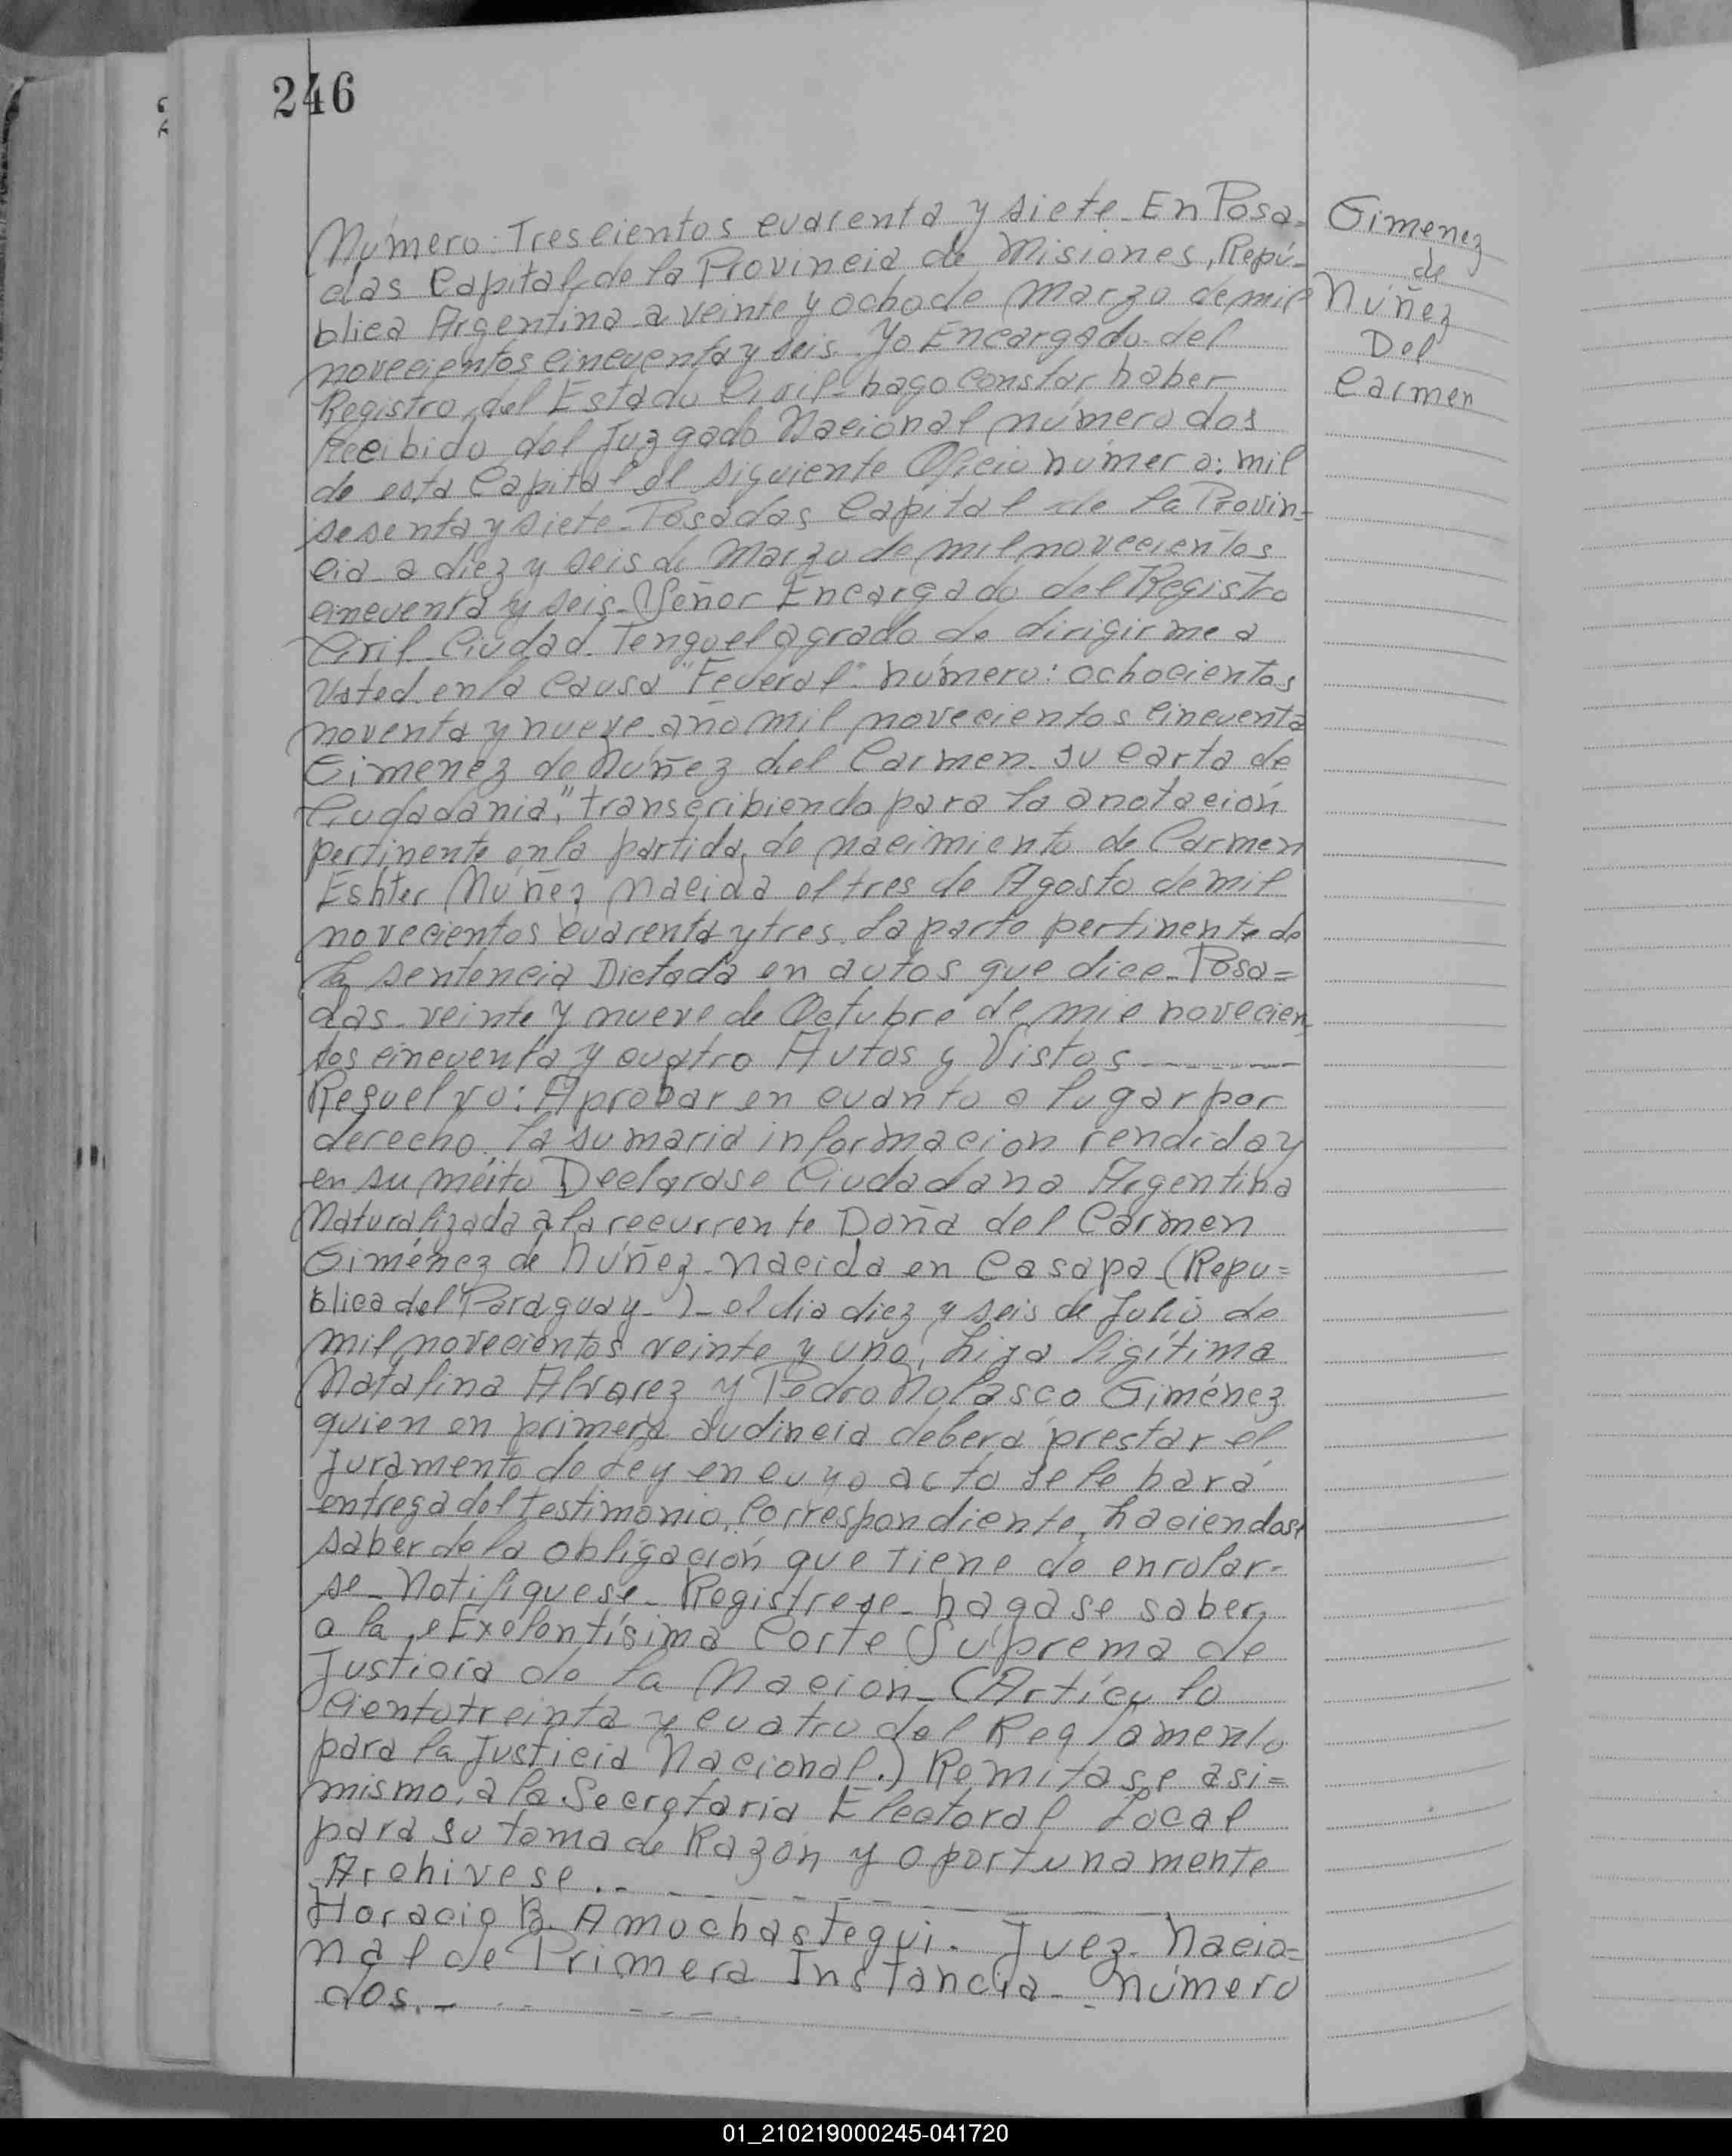 246
Número: Trescientos cuarenta y siete_ En Posa=
das Capital de la Provincia de Misiones, Repú-
blica Argentina_ a veinte y ocho de Marzo de mil
novecientos cincuenta y seis. Yo Encargado del
Registro del Estado Civil_ hago constar haber
Recibido del Juzgado Nacional número dos
de esta Capital el siguiente Oficio número: mil
sesenta y siete_ Posadas Capital de la Provin-
cia_ a diez y seis de Marzo de mil novecientos
cincuenta y seis_ Señor Encargado del Registro
Civil. Ciudad. Tengo el agrado de dirigirme a
Usted. en la Causa "Federal" número: ochocientos
noventa y nueve_ año mil novecientos cincuenta
Gimenez de Núñez del Carmen_ su carta de
Ciudadania," transcribiendo para la anotación
pertinente en la partida de nacimiento de Carmen
Eshter Núñez nacida el tres de Agosto de mil
novecientos cuarenta y tres. La parte pertinente de
la sentencia Dictada en autos que dice_ Posa=
das_ veinte y nueve de Octubre de mil novecien
tos cincuenta y cuatro Autos y Vistos_______
Resuelvo: Aprobar en cuanto a lugar por
derecho, la sumaria informacion rendida y
en su méito Declarase Ciudadana Argentina
Naturalizada a la recurrente Doña del Carmen
Giménez de Núñez_ nacida en Casapa_(Repu=
blica del Paraguay_)_ el dia diez y seis de Julio de
mil novecientos veinte y uno, hija ligítima
Natalina Alvarez y Pedro Nolasco Giménez
quien en primera audincia deberá prestar el
juramento de Ley en cuyo acto se le hará
entrega del testimonio, Correspondiente, haciendose
saber de la obligación que tiene de enrolar-
se_ Notifiquese_ Registrese_ hagase saber,
a la, eExelentísima Corte Suprema de
Justicia de la Nacion_ (Artículo
ciento treinta y cuatro del Reglamento
para la Justicia Nacional.) Remitase asi=
mismo, a la Secretaria Electoral Local
para su toma de Razón y oportunamente
Archivese._ _ _ _ _ _ _
Horacio B. Amuchastegui. Juez_ Nacio=
nal de Primera Instancia_ _ número
dos._ _ _ _ _ _
Gimenez
de
Núñez
Del
Carmen
01_210219000245-041720